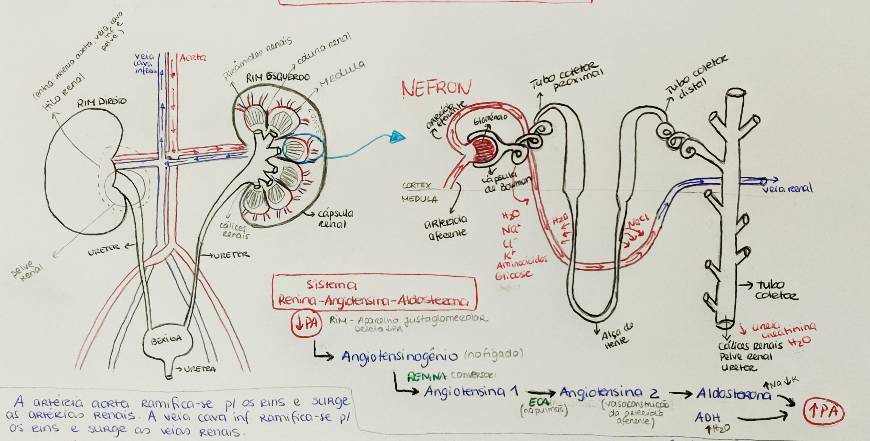 (entra artéria aorta, veia cava
inf e
pelve)
Hilo renal
RIM DIREITO
veia
cava
inferior
Aorta
Pirâmides renais
coluna renal
RIM ESQUERDO
Medula
cálices
renais
cápsula
renal
pelve
Renal
URETER
URETER
BEXIGA
URETRA
NEFRON
arteríola
eferente
Glomérulo
Tubo coletor
proximal
Tubo coletor
distal
cápsula
de Bowman
CORTEX
MEDULA
arteríola
aferente
H2O
Na+
Cl-
K+
Aminoácidos
Glicose
H2O
NaCl
veia renal
Alça de
Henle
Tubo
coletor
↓ ureia
creatinina
H2O
Cálices Renais
Pelve renal
Ureter
Sistema
Renina-Angiotensina-Aldosterona
↓PA
RIM - Aparelho justaglomerular
detecta ↓PA
Angiotensinogênio (no fígado)
RENINA converse:
Angiotensina 1
ECA
(no pulmão)
Angiotensina 2
(vasoconstrução
da arteríola
aferente)
Aldosterona
↑Na ↓K
ADH
↑H2O
↑PA
A artéria aorta ramifica-se p/ os rins e surge
as artérias renais. A veia cava inf ramifica-se p/
os rins e surge as veias renais.